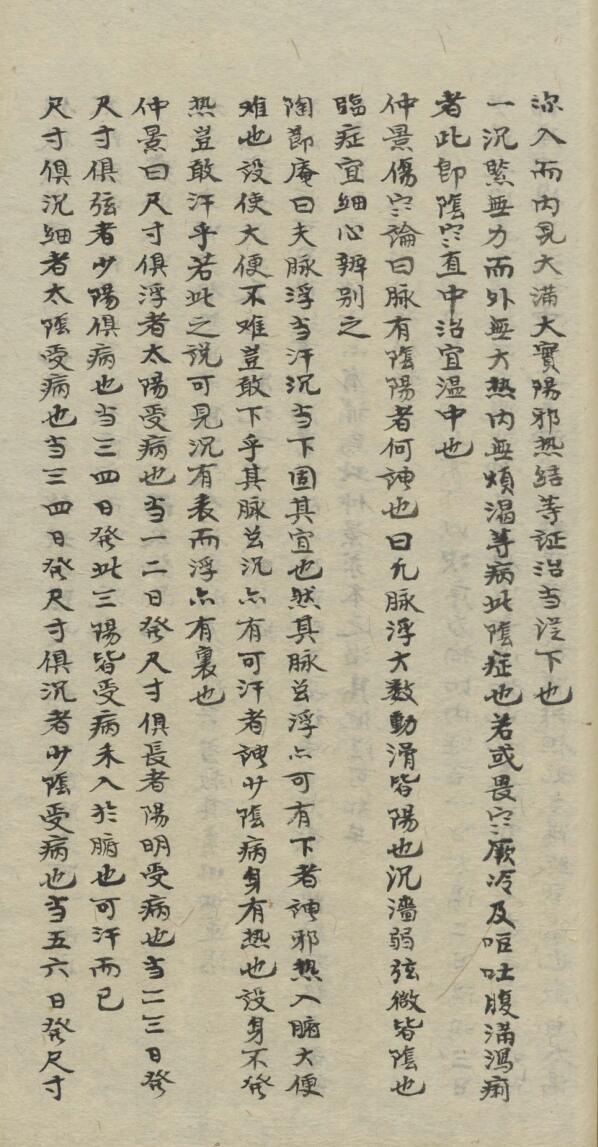 深入而内見大滿大實陽邪热結等证治当從下也
一沉緊無力而外無大热内無煩渴等病此陰症也若或畏寒厥冷及呕吐腹滿瀉痢
者此即陰寒直中治宜温中也
仲景傷寒論曰脉有陰陽者何謂也曰凡脉浮大数動滑皆陽也沉濇弱弦微皆陰也
臨症宜細心辨别之
陶節庵曰夫脉浮当汗沉当下固其宜也然其脉虽浮亦可有下者謂邪热入腑大便
难也設使大便不难豈敢下乎其脉虽沉亦有可汗者謂少陰病身有热也設身不發
热豈敢汗乎若此之説可見沉有表而浮亦有裏也
仲景曰尺寸俱浮者太陽受病也当一二日發尺寸俱長者陽明受病也当二三日發
尺寸俱弦者少陽俱病也当三四日發此三陽皆受病未入於腑也可汗而已
尺寸俱沉細者太陰受病也当三四日發尺寸俱沉者少陰受病也当五六日發尺寸